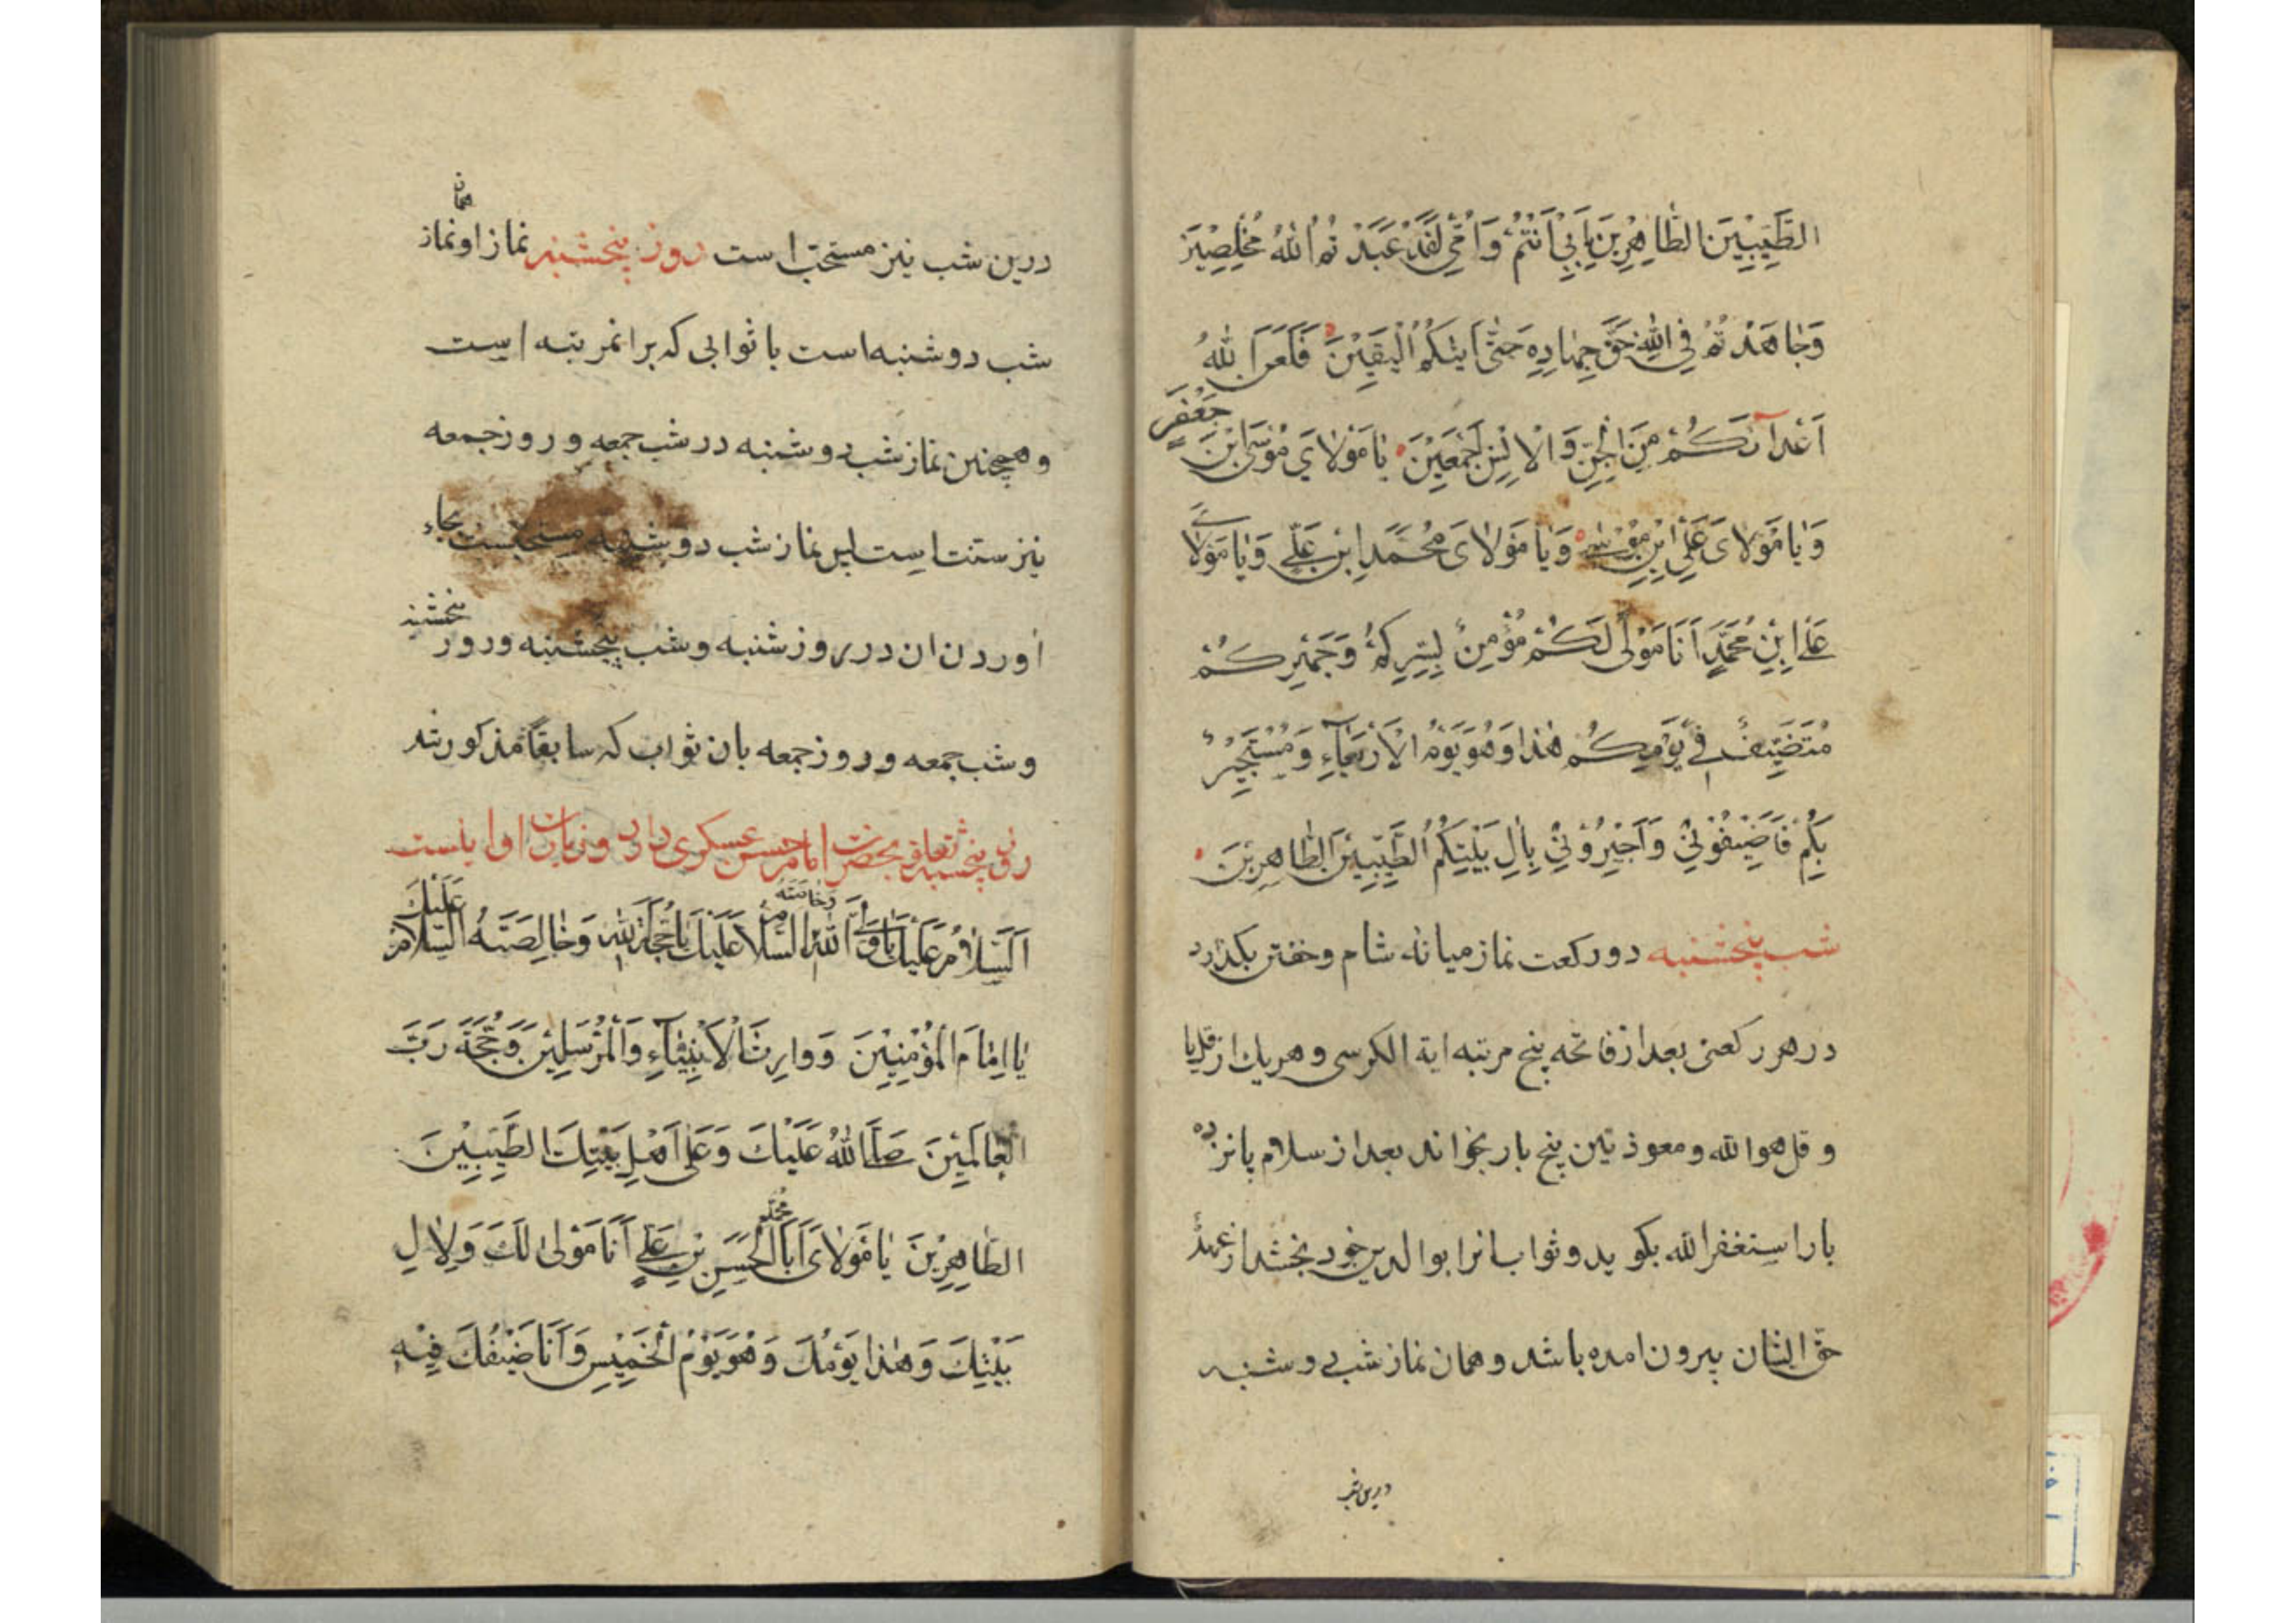 الطَّيِّبِيْنَ الطَّاهِرِيْنَ بِاَبِيْ اَنْتُمْ وَاُمِّيْ لَقَدْ عَبَدْتُمُ اللهَ مُخْلِصِيْنَ
وَجَاهَدْتُمْ فِي اللهِ حَقَّ جِهَادِهِ حَتّٰى اَتٰيكُمُ الْيَقِيْنُ فَلَعَنَ اللهُ
اَعْدَآئَكُمْ مِنَ الْجِنِّ وَالْاِنْسِ اَجْمَعِيْنَ يَا مَوْلَايَ مُوْسَى ابْنَ جَعْفَرٍ
وَيَا مَوْلَايَ عَلِيَّ ابْنِ مُوْسٰى وَيَا مَوْلَايَ مُحَمَّدَ ابْنِ عَلِيٍّ وَيَا مَوْلَايَ
عَلِيَّ ابْنِ مُحَمَّدٍ اَنَا مَوْلًى لَكُمْ مُؤْمِنٌ بِسِرِّكُمْ وَجَهْرِكُمْ
مُتَضَيِّفٌ فِيْ يَوْمِكُمْ هٰذَا وَهُوَ يَوْمُ الْاَرْبَعَآءِ وَمُسْتَجِيْرٌ
بِكُمْ فَاَضِيْفُوْنِيْ وَاَجِيْرُوْنِيْ بِاٰلِ بَيْتِكُمُ الطَّيِّبِيْنَ الطَّاهِرِيْنَ
شب پنجشنبه دو ركعت نماز ميانه شام وخفتن بكذارد
در هر ركعتى بعد از فاتحه پنج مرتبه اية الكرسى و هر يك از قل يا
و قل هو الله و معوذتين پنج بار بخواند بعد از سلام پانزده
بار استغفر الله بكويد و ثواب انرا بوالدين خود بخشد از عهدهٔ
حق ايشان بيرون امده باشد و همان نماز شب دوشنبه
درين شب
درين شب نيز مستحب است روز پنجشنبه نماز او نماز همان
شب دوشنبه است با ثوابى كه برانمرتبه است
و همچنين نماز شب دوشنبه در شب جمعه و روز جمعه
نيز سنت است پس نماز شب دوشنبه مستحبست بجاء
اوردن ان در روز شنبه و شب پنجشنبه و روز پنجشنبه
و شب جمعه و روز جمعه بان ثواب كه سابقاً مذكور شد
روز پنجشنبه تعلق بحضرت امام حسن عسكرى دارد و زيارت او اينست
اَلسَّلَامُ عَلَيْكَ يَا وَلِيَّ اللهِ السَّلَامُ عَلَيْكَ يَا حُجَّةَ اللهِ وَخَالِصَتَهُ السَّلَامُ عَلَيْكَ
يَا اِمَامَ الْمُؤْمِنِيْنَ وَوَارِثَ الْاَنْبِيَآءِ وَالْمُرْسَلِيْنَ وَحُجَّةَ رَبِّ
الْعَالَمِيْنَ صَلَّى اللهُ عَلَيْكَ وَعَلٰى اَهْلِ بَيْتِكَ الطَّيِّبِيْنَ
الطَّاهِرِيْنَ يَا مَوْلَايَ اَبَا مُحَمَّدٍ الْحَسَنِ بْنِ عَلِيٍّ اَنَا مَوْلًى لَكَ وَلِاٰلِ
بَيْتِكَ وَهٰذَا يَوْمُكَ وَهُوَ يَوْمُ الْخَمِيْسِ وَاَنَا ضَيْفُكَ فِيْهِ